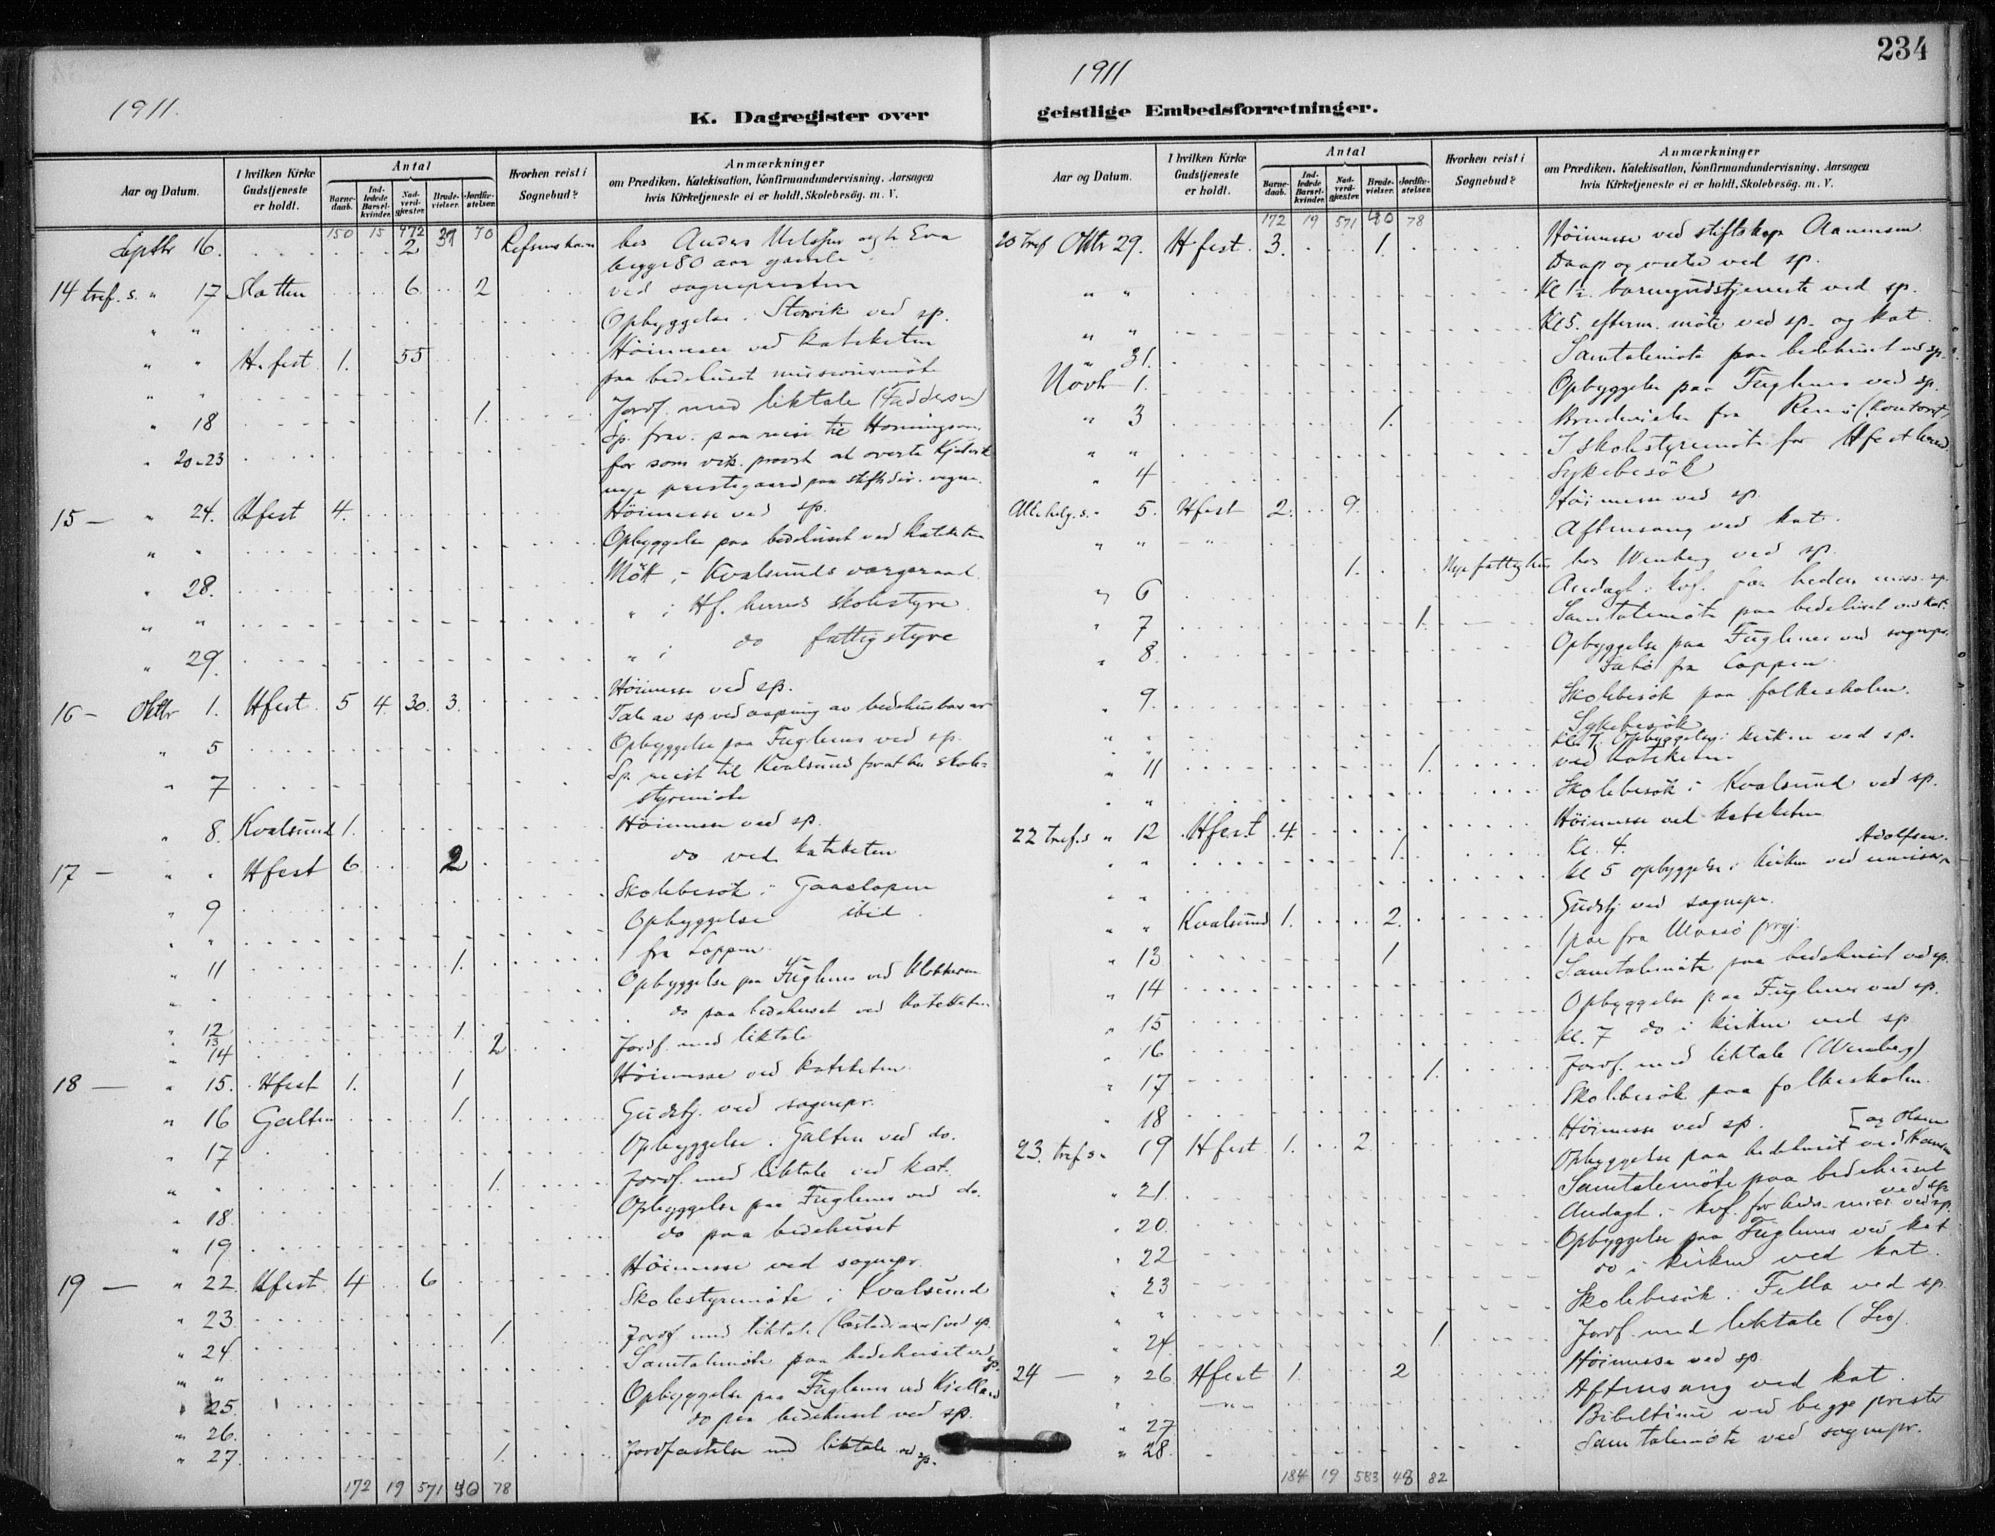 234
1911.
K. Dagregister over
Aar og Datum.
I hvilken Kirke Gudstjeneste er holdt.
Antal
Barnedaab.
Indledede Barselkvinder.
Nadverdgjæster.
Brudevielser.
Jordfæstelser.
Hvorhen reist i Sognebud?
Anmærkninger
om Prædiken, Katekisation, Konfirmandundervisning. Aarsagen
hvis Kirketjeneste ei er holdt, Skolebesög. m. V.
150 15 472 70
Septbr 16. 2 hos Anders Eva
begge 80 aar gamle
14 tref. s. " 17 6 2 ved sognepresten
" " Opbyggelse i ved sp.
" " H.fest 1. 55 Höimesse ved kateketen
paa bedehuset missionsmöte
" 18 1. Jordf. med liktale (Feddersen)
" 20-23 Sp. frav. paa reise til Honningsvaag
for som prost at
prestegaard paa
15 — " 24. Hfest 4. Höimesse ved sp.
" " Opbyggelse paa bedehuset ved kateketen
" 28. Mött i Kvalsunds værgeraad
" " " i Hf. herreds skolestyre
" 29. " i do fattigstyre
16 — Oktbr 1. Hfest 5 4. 30. 3. Höimesse ved sp.
Tale av sp ved aapning av
" 5 Opbyggelse paa Fuglenes ved sp.
" 7 Sp. reist til Kvalsund skole-
styremöte
" 8. Kvalsund 1. Höimesse ved sp.
17 — " " Hfest 6 2 do ved kateketen
" 9 Skolebesök i
" " Opbyggelse ibid
" 11 1. 1 fra Loppen
" Opbyggelse paa Fuglenes ved klokkeren
" 12 1. do paa bedehuset ved kateketen
" 13
" 14 2 Jordf. med liktale
18 — " 15. Hfest 1. 1 Höimesse ved kateketen
" 16 Galten 1. Gudstj. ved sognepr.
" 17 Opbyggelse i Galten ved do.
" " 1. Jordf. med liktale ved kat.
" 18 Opbyggelse paa Fuglenes ved do.
" 19 do paa bedehuset
19 — " 22. Hfest 4 6 Höimesse ved sognepr.
" 23. Skolestyremöte i Kvalsund
" 24 1. Jordf med liktale ved sp.
" " Samtalemöte paa bedehuset ved sp.
" 25 Opbyggelse paa Fuglenes ved
" 26. do paa bedehuset ved sp.
" 27. 1. Jordfæstelse med liktale ved sp.
172 19 571 40 78
1911
geistlige Embedsforretninger.
Aar og Datum.
I hvilken Kirke Gudstjeneste er holdt.
Antal
Barnedaab.
Indledede Barselkvinder.
Nadverdgjæster.
Brudevielser.
Jordfæstelser.
Hvorhen reist i Sognebud?
Anmærkninger
om Prædiken, Katekisation, Konfirmandundervisning. Aarsagen
hvis Kirketjeneste ei er holdt, Skolebesög. m. V.
172 19 571 40 78
20 tref Oktbr 29. H.fest. 3. 1. Höimesse ved stiftskap. Aanensen
Daap og ved sp.
" " Kl 1½ barnegudstjeneste ved sp.
" " Kl 5. efterm. möte ved sp. og kat.
" 31. Samtalemöte paa bedehuset ved sp.
Novbr 1. Opbyggelse paa Fuglenes ved sp.
" 3 1. Brudevielse fra
" " I skolestyremöte for Hfest herred
" 4 Sykebesök
Allehelg.s. " 5. Hfest 2. 9. Höimesse ved sp.
" " " Aftensang ved kat.
1. hos Wenberg ved sp.
" 6 Andagt i for heden. miss. sp.
" 7 1. Samtalemöte paa bedehuset ved kat.
" 8 Opbyggelse paa Fuglenes ved sognepr.
fra Loppen
" 9. Skolebesök paa folkeskolen.
" " Sykebesök
Kl. 7. Opbyggelse i kirken ved sp.
" 11 1. ved kateketen
" " Skolebesök i Kvalsund ved sp.
22 tref.s " 12 Hfest 4. Höimesse ved kateketen
" " 1. Kl. 4. Adolfsen
" " Kl 5 opbyggelse i kirken ved
" " Kvalsund 1. 2. Gudstj. ved sognepr.
" 13 1 1 par fra
" 14 Samtalemöte paa bedehuset ved sp.
" 15 Opbyggelse paa Fuglenes ved sp.
" 16 Kl. 7 do i kirken ved sp
" 17 1. Jordf. med liktale (Wenberg)
" 18 Skolebesök paa folkeskolen.
23. tref.s " 19 Hfest 1. 2. Höimesse ved sp. [og Olsen
Opbyggelse paa bedehuset ved
" 21. Samtalemöte paa bedehuset
ved sp
" 20. Andagt i for hedn. miss. ved sp.
" 22 Opbyggelse paa Fuglenes ved kat
" 23 do i kirken ved kat.
" " Skolebesök i ved sp.
" 24 1 Jordf. med liktale
24 — " 26 Hfest 1. 2 Höimesse ved sp
" Aftensang ved kat.
" 27 Bibeltime ved begge prester
" 28 Samtalemöte ved sognepr.
184 19 583 48 82